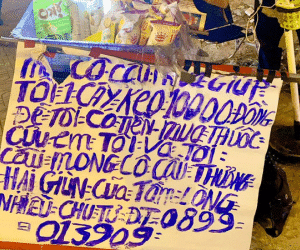 CÔ CẬU GIÚP
TÔI 1 CÂY KẸO 10000 ĐỒNG
ĐỂ TÔI CÓ TIỀN MUA THUỐC
CỨU EM TÔI VÀ TÔI
CẦU MONG CÔ CẬU THƯƠNG
HẠI GIÙN CỦA TÂM LÒNG
NHIỀU CHỮ TỪ ĐT 0899
013909